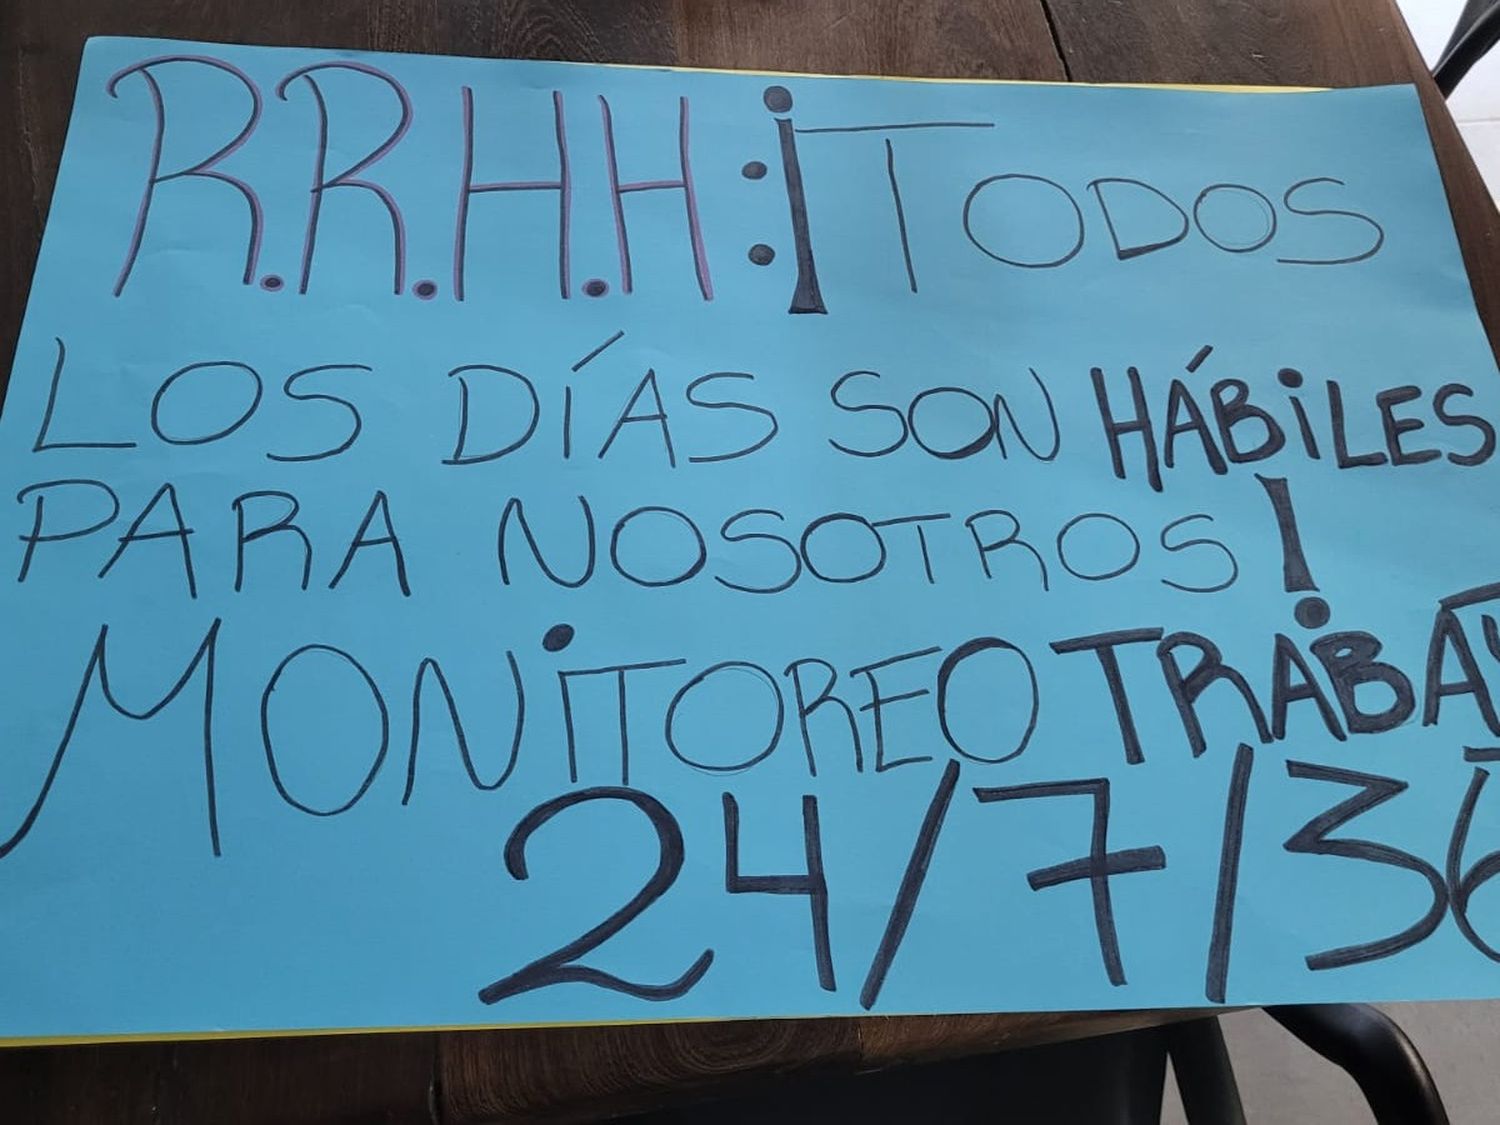 R.R.H.H : ¡TODOS
LOS DÍAS SON HÁBILES
PARA NOSOTROS!
MONITOREO TRABA
24/7/36